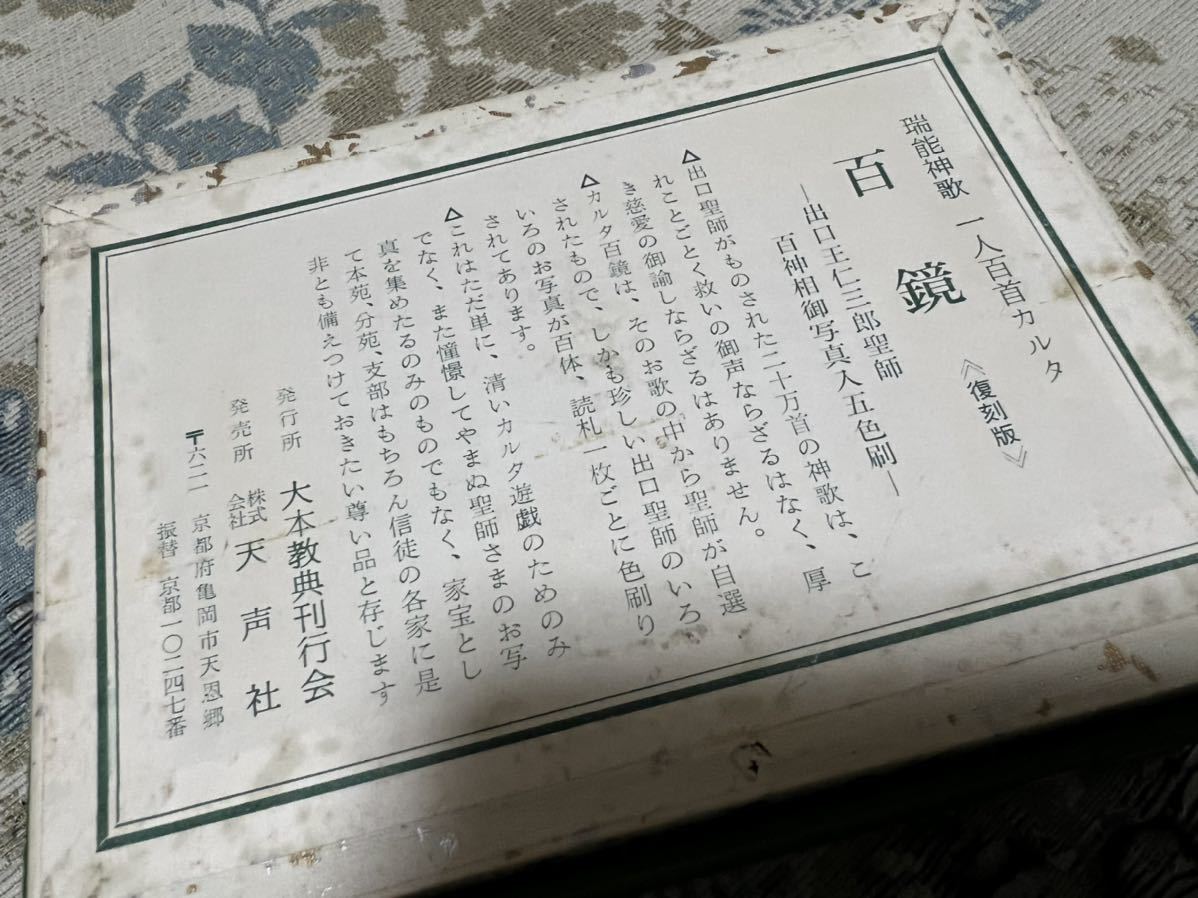 瑞能神歌 一人百首カルタ
百鏡
《復刻版》
―出口王仁三郎聖師
百神相御写真入五色刷―
△出口聖師がものされた二十万首の神歌は、こ
れことごとく救いの御声ならざるはなく、厚
き慈愛の御諭しならざるはありません。
△カルタ百鏡は、そのお歌の中から聖師が自選
されたもので、しかも珍しい出口聖師のいろ
いろのお写真が百体、読札一枚ごとに色刷り
されてあります。
△これはただ単に、清いカルタ遊戯のためのみ
でなく、また憧憬してやまぬ聖師さまのお写
真を集めたるのみのものでもなく、家宝とし
て本苑、分苑、支部はもちろん信徒の各家に是
非とも備えつけておきたい尊い品と存じます
発行所 大本教典刊行会
発売所 株式会社 天声社
〒六二一 京都府亀岡市天恩郷
振替 京都一〇二四七番